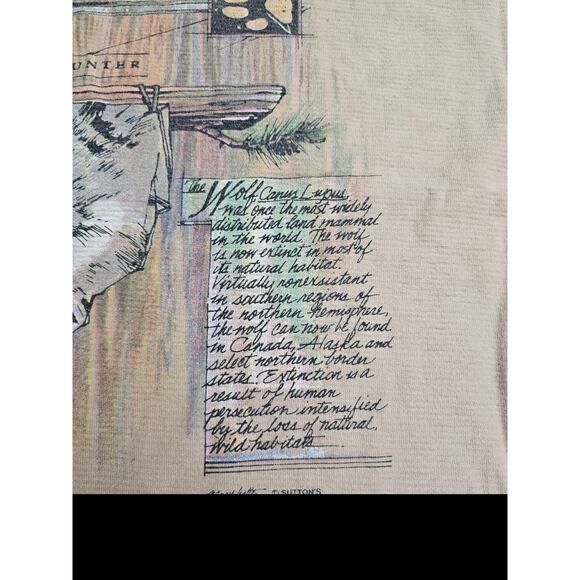 UNTER
The Wolf, Canus Lupus,
was once the most widely
distributed land mammal
in the world. The wolf
is now extinct in most of
its natural habitat.
Virtually nonexsistant
in southern regions of
the northern hemisphere,
the wolf can now be found
in Canada, Alaska and
select northern border
states. Extinction is a
result of human
persecution intensified
by the loss of natural,
wild habitats.
© SUTTON'S